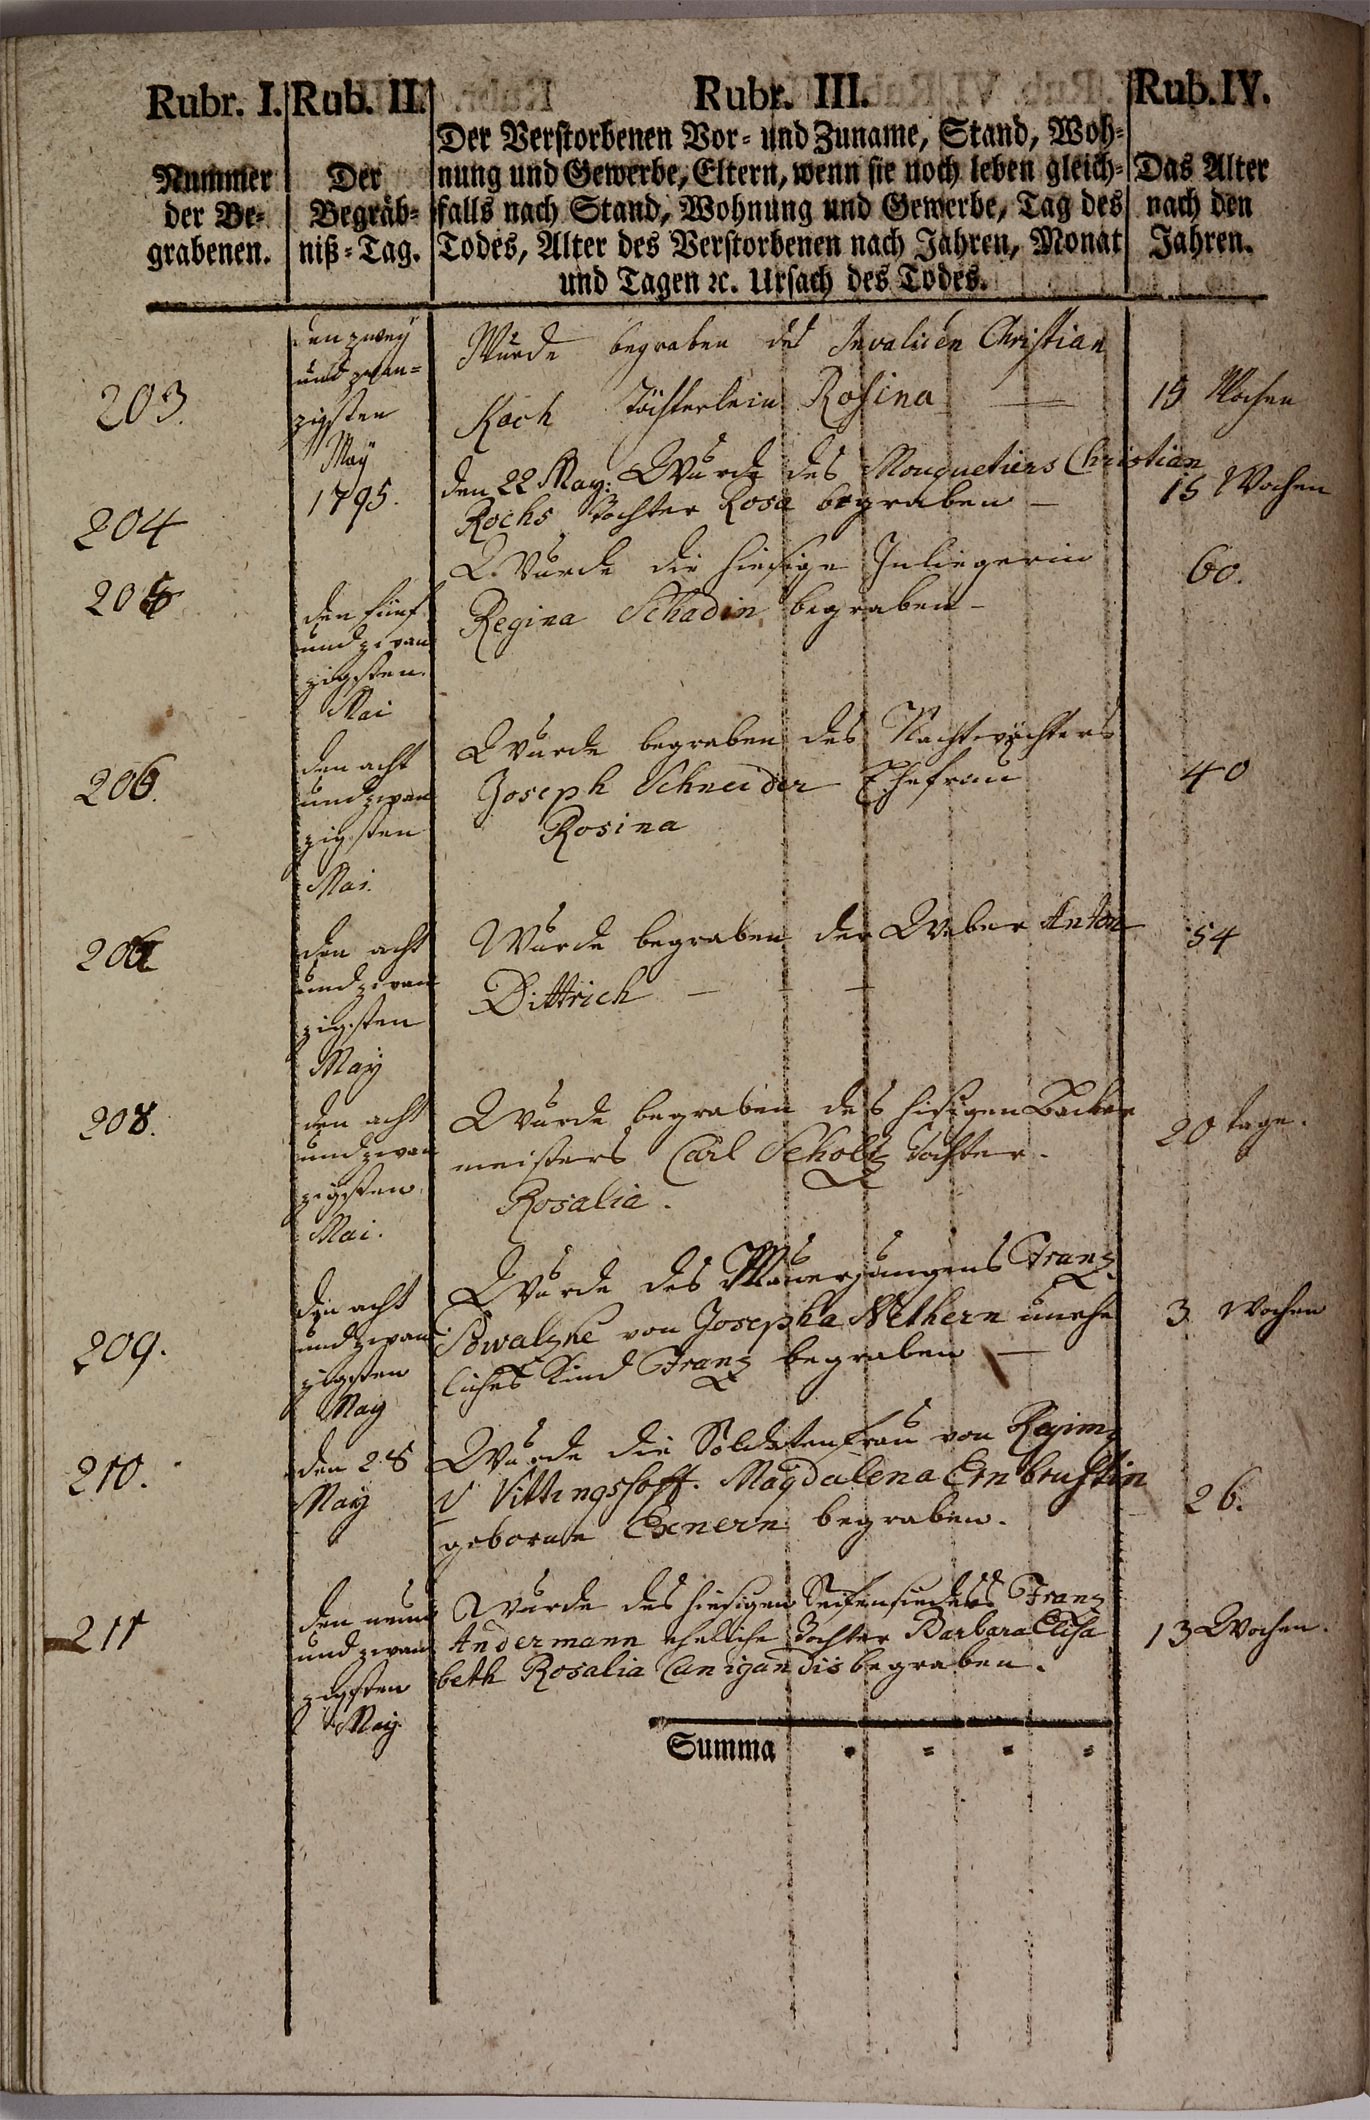 Rubr. I. Rub. II. Rubr. III. Rub. IV.
Nummer der Be-
grabenen.
Der
Begräb-
niß-Tag.
Der Verstorbenen Vor- und Zuname, Stand, Woh-
nung und Gewerbe, Eltern, wenn sie noch leben gleich-
falls nach Stand, Wohnung und Gewerbe, Tag des
Todes, Alter des Verstorbenen nach Jahren, Monat
und Tagen ꝛc. Ursach des Todes.
Das Alter
nach den
Jahren.
203.
den zwey
und zwan-
zigsten
May
1795.
Wurde begraben des Invaliden Christian
Koch Töchterlein Rosina
15 Wochen
204
den 22 May: Wurde des Mouquetiers Christian
Kochs Tochter Rosa begraben —
15 Wochen
205
den fünf
und zwan
zigsten
Mai
Wurde die hiesige Inliegerin
Regina Schadin begraben —
60.
206.
den acht
und zwan
zigsten
Mai.
Wurde begraben des Nachtwächters
Joseph Schneider Ehefrau
Rosina
40
den acht
und zwan
zigsten
May
Wurde begraben der Weber Anton
Dittrich — — —
54
208.
den acht
und zwan
zigsten
Mai.
Wurde begraben des hisigen Becker
meisters Carl Scholtz Tochter.
Rosalia.
20 tage.
209.
den acht
und zwan
zigsten
May
Wurde des Franz
von Josepha unehe
liches Kind Franz begraben —
3 Wochen
210.
den 28
May
Wurde die Soldatenfrau von Regim.
v Vittingshoff. Magdalena Ernbrustin
geborne Exnern begraben.
26.
211
den neun
und zwan
zigsten
May.
Wurde des hiesigen Seifensieders Franz
Andermann eheliche Tochter Barbara Elisa
beth Rosalia Canigundis begraben.
13 Wochen.
Summa